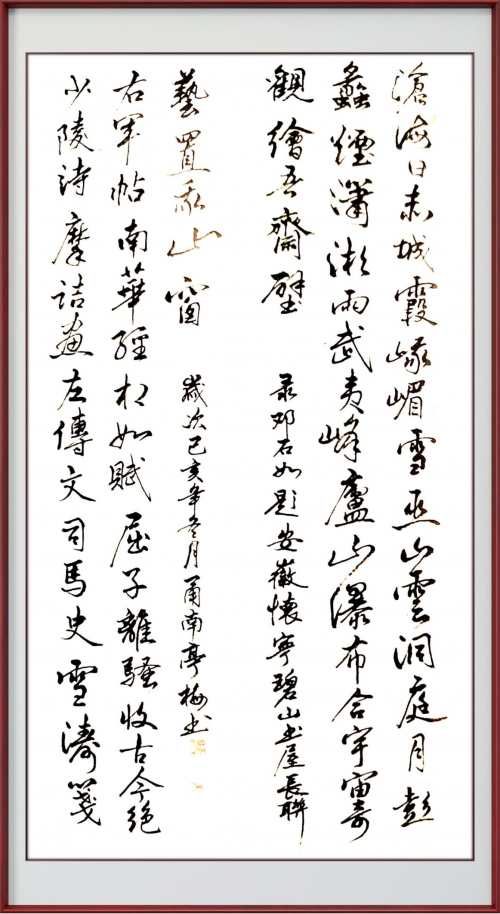 滄海日赤城霞峨嵋雪巫山雲洞庭月彭
蠡煙瀟湘雨武夷峰廬山瀑布合宇宙奇
觀繪吾齋壁
录邓石如题安徽懷寧碧山书屋長聯
少陵詩摩詰畫左傳文司馬史雪濤箋
右军帖南華經相如賦屈子離騷收古今絕
藝置我山窗
歲次己亥年冬月甬南亭梅书